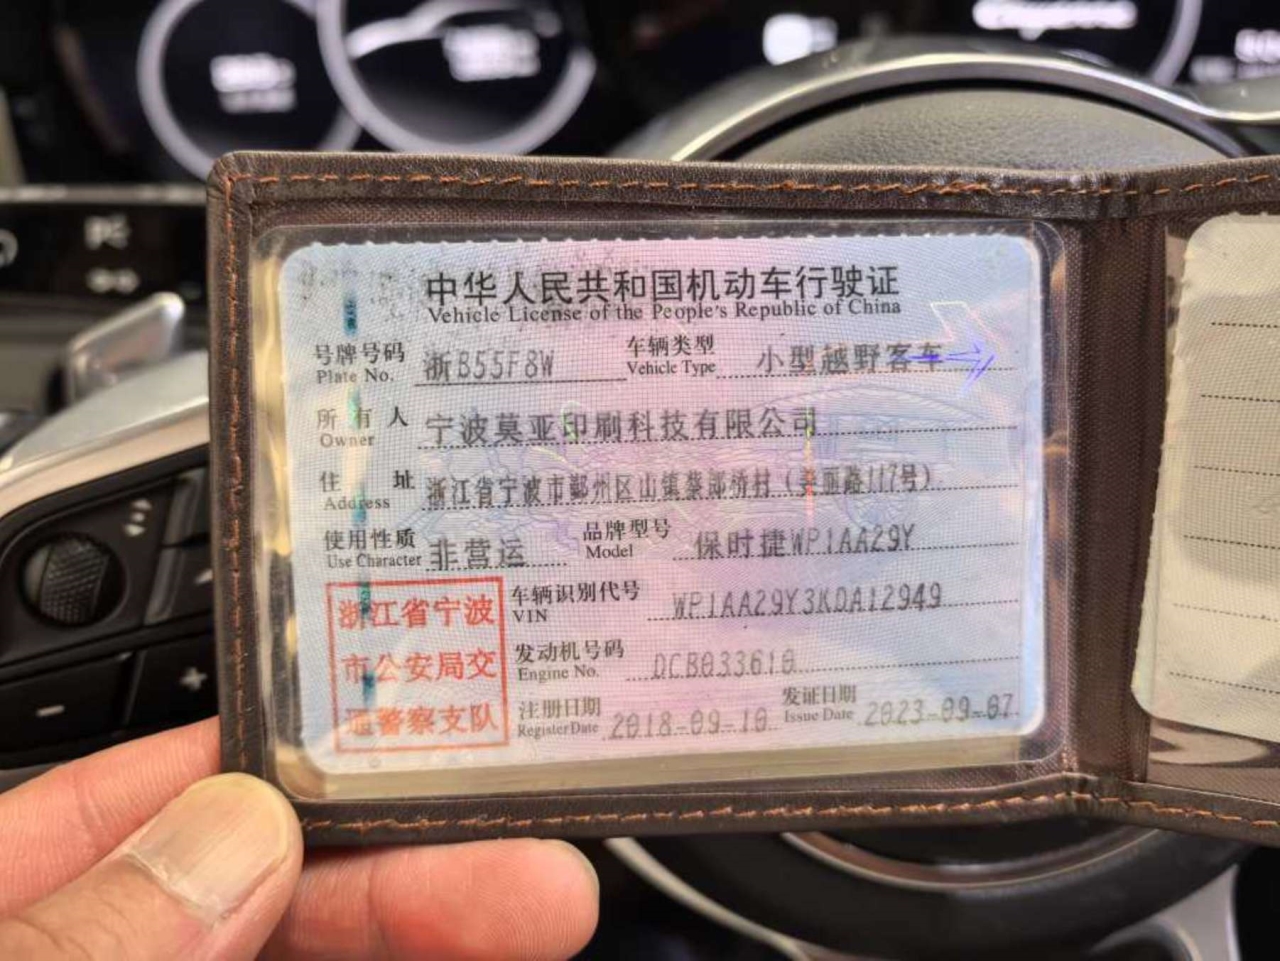 中华人民共和国机动车行驶证
Vehicle License of the People's Republic of China
号牌号码 浙B55F8W 车辆类型 小型越野客车
Plate No. Vehicle Type
所有人 宁波莫亚印刷科技有限公司
Owner
住址 浙江省宁波市鄞州区山镇蔡郎桥村（姜丽路117号）
Address
使用性质 非营运 品牌型号 保时捷WP1AA29Y
Use Character Model
车辆识别代号 WP1AA29Y3KDA12949
VIN
发动机号码 DCB033610
Engine No.
注册日期 2018-09-10 发证日期 2023-09-07
Register Date Issue Date
浙江省宁波
市公安局交
通警察支队